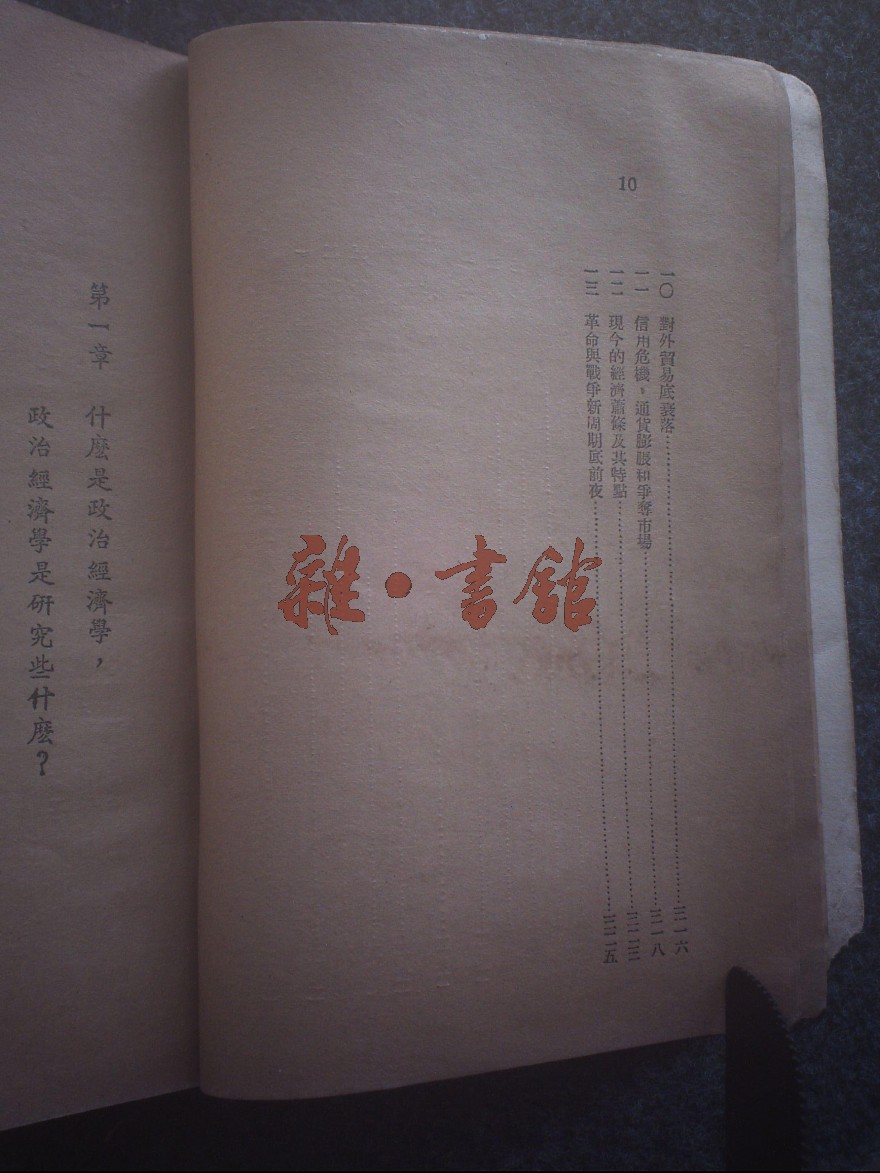 10
一〇 對外貿易底衰落……三一六
一一 信用危機、通貨膨脹和爭奪市場……三一八
一二 現今的經濟蕭條及其特點……三二三
一三 革命與戰爭新周期底前夜……三二五
雜·書館
第一章 什麽是政治經濟學，
政治經濟學是研究些什麽？